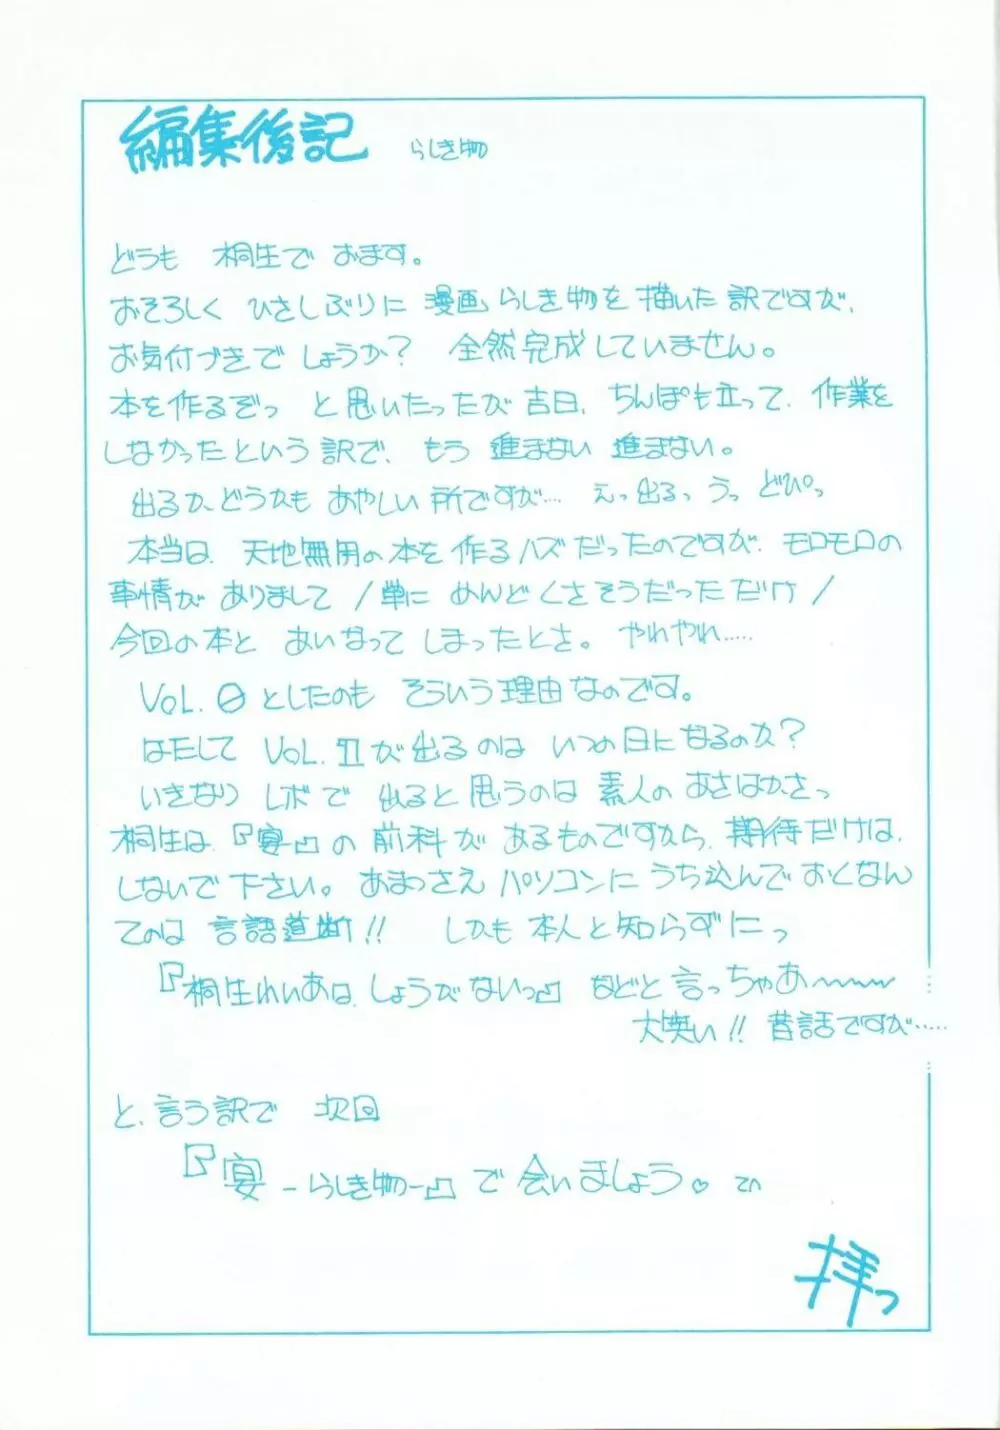 編集後記 らしき物
どうも 桐生で おます。
おそろしく ひさしぶりに 漫画らしき物を 描いた 訳ですが、
お気付づきで しょうか? 全然完成していません。
本を作るぞっ と思いたったが吉日、ちんぽも立って、作業を
しなかったという訳で、もう 進まない 進まない。
出るか、どうかも あやしい 所ですが… えっ出るっ うっ どぴっ
本当は、天地無用の本を 作るハズだったのですが、モロモロの
事情が ありまして /単に めんどくさそうだっただけ/
今回の本と あいなって しまったとさ。 やれやれ……
VOL.0としたのも そういう理由なのです。
はたして VOL.Ⅱが出るのは いつの日になるのか?
いきなり レボで 出ると思うのは 素人の あさはかさっ
桐生は、『宴』の 前科が あるものですから、期待だけは、
しないで下さい。あまつさえ パソコンに うち込んで おくなん
てのは 言語道断!! しかも 本人と知らずにっ
『桐生れいあは、しょうがないっ』などと言っちゃあ〜〜〜
大笑い!! 昔話ですが……
と、言う訳で 次回
『宴-らしき物-』で 会いましょう♡ てへ
拝っ